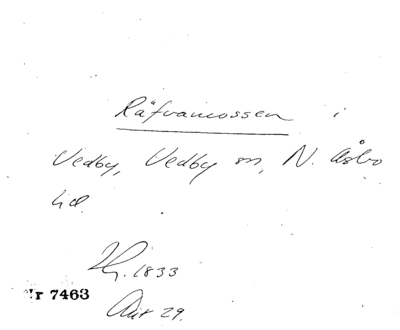 Räfvamossen i
Vedby, Vedby sn, N. Åsbo
hd.
1833
Nr 7463
Akt 29.